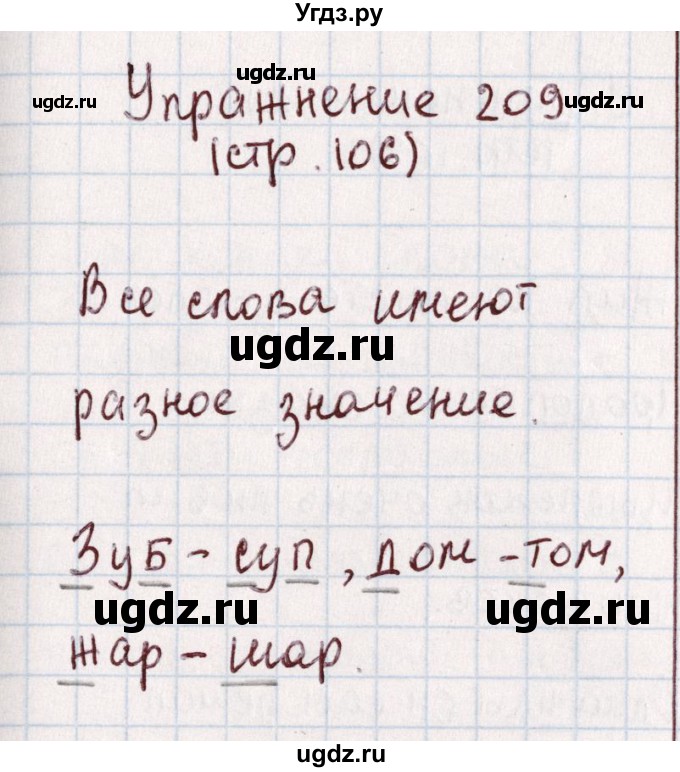 Угдз.ру
ugdz.ru
ugdz.ru
ugdz.ru
Упражнение 209
(стр. 106)
Все слова имеют
ugdz.ru
разное значение.
Зуб - суп, дом - том,
ugdz.ru
ugdz.ru
жар - шар.
ugdz.ru